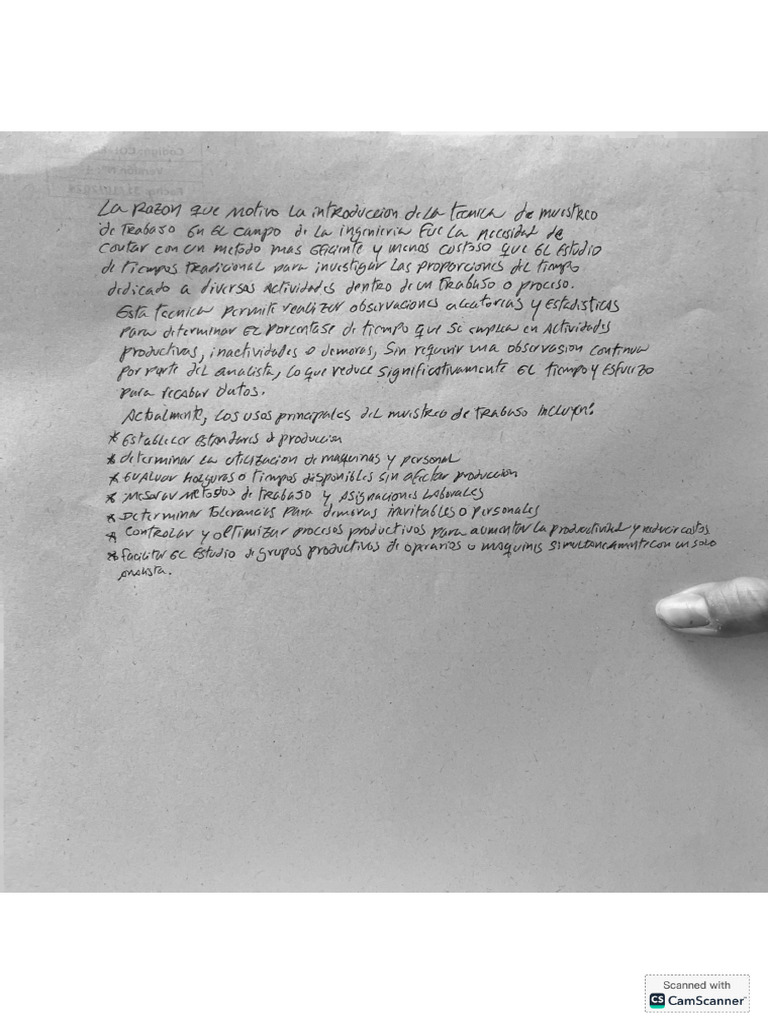 La Razon que motivo la introduccion de la tecnica de muestreo
de trabajo en el campo de la ingenieria fue la necesidad de
contar con un metodo mas eficiente y menos costoso que el estudio
de tiempos tradicional para investigar las proporciones del tiempo
dedicado a diversas actividades dentro de un trabajo o proceso.
Esta tecnica permite realizar observaciones aleatorias y estadisticas
para determinar el porcentaje de tiempo que se emplea en actividades
productivas, inactividades o demoras, sin requerir una observasion continua
por parte del analista, lo que reduce significativamente el tiempo y esfuerzo
para recabar datos.
Actualmente, los usos principales del muestreo de trabajo incluyen:
* Establecer estandares de produccion
* determinar la utilizacion de maquinas y personal
* Evaluar holguras o tiempos disponibles sin afectar produccion
* mejorar metodos de trabajo y asignaciones laborales
* Determinar tolerancias para demoras inevitables o personales
* Controlar y optimizar procesos productivos para aumentar la productividad y reducir costos
* facilitar el estudio de grupos productivos de operarios o maquinas simultaneamente con un solo
analista.
Scanned with
CS CamScanner